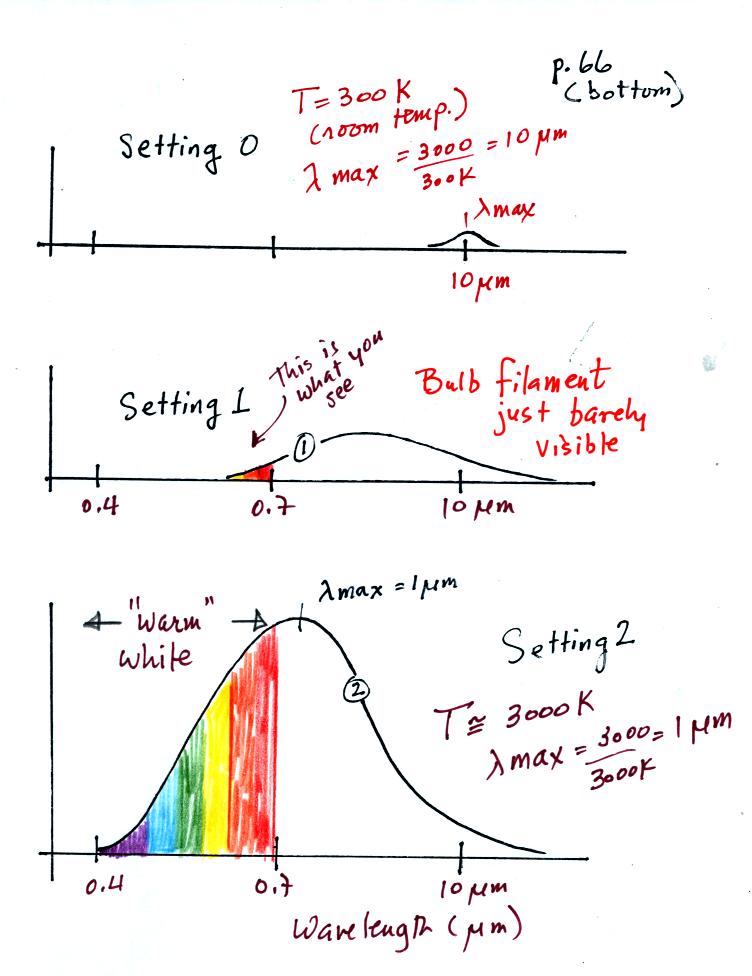 p.66
(bottom)
T = 300 K
(room temp.)
Setting 0
λ max = 3000/300K = 10 μm
λmax
10 μm
This is
what you
see
Bulb filament
just barely
visible
Setting 1
1
0.4
0.7
10 μm
λmax = 1μm
"warm"
white
Setting 2
2
T ≅ 3000K
λmax = 3000/3000K = 1 μm
0.4
0.7
10 μm
Wavelength (μm)